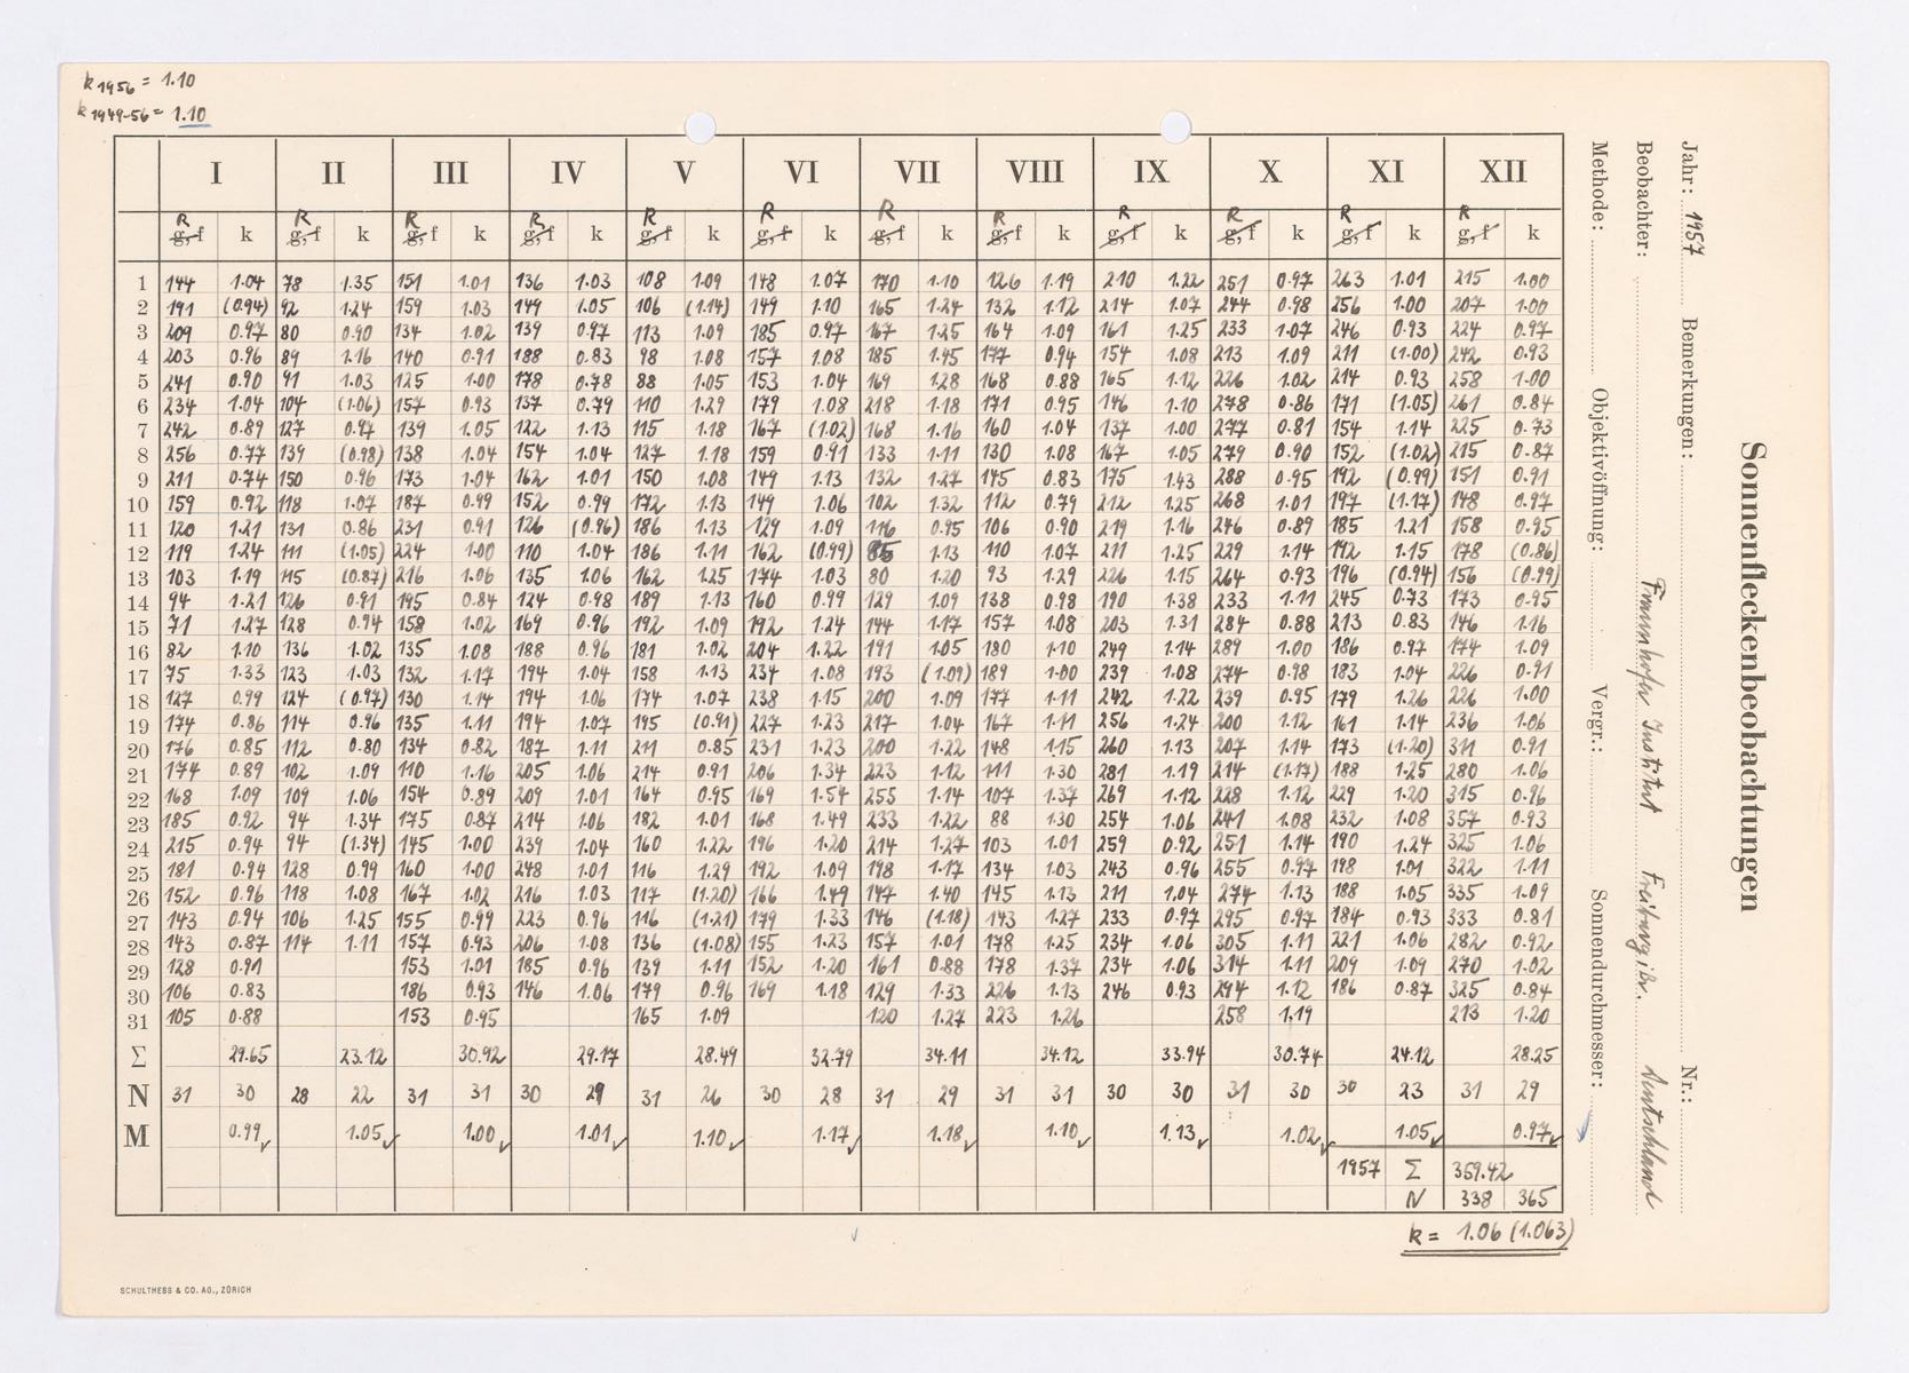 k 1956 = 1.10
k 1949-56 = 1.10
Sonnenfleckenbeobachtungen
Jahr: 1957 Bemerkungen: Nr.:
Beobachter: Fraunhofer Institut Freiburg i. Br. Deutschland
Methode: Objektivöffnung: Vergr.: Sonnendurchmesser:
I II III IV V VI VII VIII IX X XI XII
R R R R R R R R R R R R
g, f k g, f k g, f k g, f k g, f k g, f k g, f k g, f k g, f k g, f k g, f k g, f k
1 144 1.04 78 1.35 151 1.01 136 1.03 108 1.09 148 1.07 170 1.10 126 1.19 210 1.22 251 0.97 263 1.01 215 1.00
2 191 (0.94) 92 1.24 159 1.03 149 1.05 106 (1.14) 149 1.10 165 1.24 132 1.12 214 1.07 244 0.98 256 1.00 207 1.00
3 209 0.97 80 0.90 134 1.02 139 0.97 113 1.09 185 0.97 167 1.25 164 1.09 161 1.25 233 1.07 246 0.93 224 0.97
4 203 0.96 89 1.16 140 0.91 188 0.83 98 1.08 157 1.08 185 1.45 177 0.94 154 1.08 213 1.09 211 (1.00) 242 0.93
5 241 0.90 91 1.03 125 1.00 178 0.78 88 1.05 153 1.04 169 1.28 168 0.88 165 1.12 226 1.02 214 0.93 258 1.00
6 234 1.04 104 (1.06) 157 0.93 137 0.79 110 1.29 179 1.08 218 1.18 171 0.95 146 1.10 278 0.86 171 (1.05) 261 0.84
7 242 0.89 127 0.97 139 1.05 122 1.13 115 1.18 167 (1.02) 168 1.16 160 1.04 137 1.00 277 0.81 154 1.14 225 0.73
8 256 0.77 139 (0.98) 138 1.04 154 1.04 127 1.18 159 0.91 133 1.11 130 1.08 167 1.05 279 0.90 152 (1.02) 215 0.87
9 211 0.74 150 0.96 173 1.04 162 1.01 150 1.08 149 1.13 132 1.27 145 0.83 175 1.43 288 0.95 192 (0.99) 151 0.91
10 159 0.92 118 1.07 187 0.99 152 0.99 172 1.13 149 1.06 102 1.32 112 0.79 212 1.25 268 1.01 197 (1.17) 148 0.97
11 120 1.21 131 0.86 231 0.91 126 (0.96) 186 1.13 129 1.09 116 0.95 106 0.90 219 1.16 246 0.89 185 1.21 158 0.95
12 119 1.24 111 (1.05) 224 1.00 110 1.04 186 1.11 162 (0.99) 85 1.13 110 1.07 211 1.25 229 1.14 192 1.15 178 (0.86)
13 103 1.19 115 (0.87) 216 1.06 135 1.06 162 1.25 174 1.03 80 1.20 93 1.29 226 1.15 264 0.93 196 (0.94) 156 (0.99)
14 94 1.21 126 0.91 195 0.84 124 0.98 189 1.13 160 0.99 129 1.09 138 0.98 190 1.38 233 1.11 245 0.73 173 0.95
15 71 1.27 128 0.94 158 1.02 169 0.96 192 1.09 192 1.24 144 1.17 157 1.08 203 1.31 284 0.88 213 0.83 146 1.16
16 82 1.10 136 1.02 135 1.08 188 0.96 181 1.02 204 1.22 191 1.05 180 1.10 249 1.14 289 1.00 186 0.97 174 1.09
17 75 1.33 123 1.03 132 1.17 194 1.04 158 1.13 234 1.08 193 (1.09) 189 1.00 239 1.08 274 0.98 183 1.04 226 0.91
18 127 0.99 124 (0.97) 130 1.14 194 1.06 174 1.07 238 1.15 200 1.09 177 1.11 242 1.22 239 0.95 179 1.26 226 1.00
19 174 0.86 114 0.96 135 1.11 194 1.07 195 (0.91) 227 1.23 217 1.04 167 1.11 256 1.24 200 1.12 161 1.14 236 1.06
20 176 0.85 112 0.80 134 0.82 187 1.11 211 0.85 231 1.23 200 1.22 148 1.15 260 1.13 207 1.14 173 (1.20) 311 0.91
21 174 0.89 102 1.09 110 1.16 205 1.06 214 0.91 206 1.34 223 1.12 111 1.30 281 1.19 214 (1.17) 188 1.25 280 1.06
22 168 1.09 109 1.06 154 0.89 209 1.01 164 0.95 169 1.54 255 1.14 107 1.37 269 1.12 228 1.12 229 1.20 315 0.96
23 185 0.92 94 1.34 175 0.87 214 1.06 182 1.01 168 1.49 233 1.22 88 1.30 254 1.06 241 1.08 232 1.08 357 0.93
24 215 0.94 94 (1.34) 145 1.00 239 1.04 160 1.22 196 1.20 214 1.27 103 1.01 259 0.92 251 1.14 190 1.24 325 1.06
25 181 0.94 128 0.99 160 1.00 248 1.01 116 1.29 192 1.09 198 1.17 134 1.03 243 0.96 255 0.97 198 1.01 322 1.11
26 152 0.96 118 1.08 167 1.02 216 1.03 117 (1.20) 166 1.49 147 1.40 145 1.13 211 1.04 274 1.13 188 1.05 335 1.09
27 143 0.94 106 1.25 155 0.99 223 0.96 116 (1.21) 179 1.33 146 (1.18) 143 1.27 233 0.97 295 0.97 184 0.93 333 0.81
28 143 0.87 114 1.11 157 0.93 206 1.08 136 (1.08) 155 1.23 157 1.01 178 1.25 234 1.06 305 1.11 221 1.06 282 0.92
29 128 0.91 153 1.01 185 0.96 139 1.11 152 1.20 161 0.88 178 1.37 234 1.06 314 1.11 209 1.09 270 1.02
30 106 0.83 186 0.93 146 1.06 179 0.96 169 1.18 129 1.33 226 1.13 246 0.93 294 1.12 186 0.87 325 0.84
31 105 0.88 153 0.95 165 1.09 120 1.27 223 1.26 258 1.19 213 1.20
Σ 29.65 23.12 30.92 29.17 28.49 32.79 34.11 34.12 33.94 30.74 24.12 28.25
N 31 30 28 22 31 31 30 29 31 26 30 28 31 29 31 31 30 30 31 30 30 23 31 29
M 0.99 1.05 1.00 1.01 1.10 1.17 1.18 1.10 1.13 1.02 1.05 0.97
1957 Σ 359.42
N 338 365
k = 1.06 (1.063)
SCHULTHESS & CO. AG., ZÜRICH